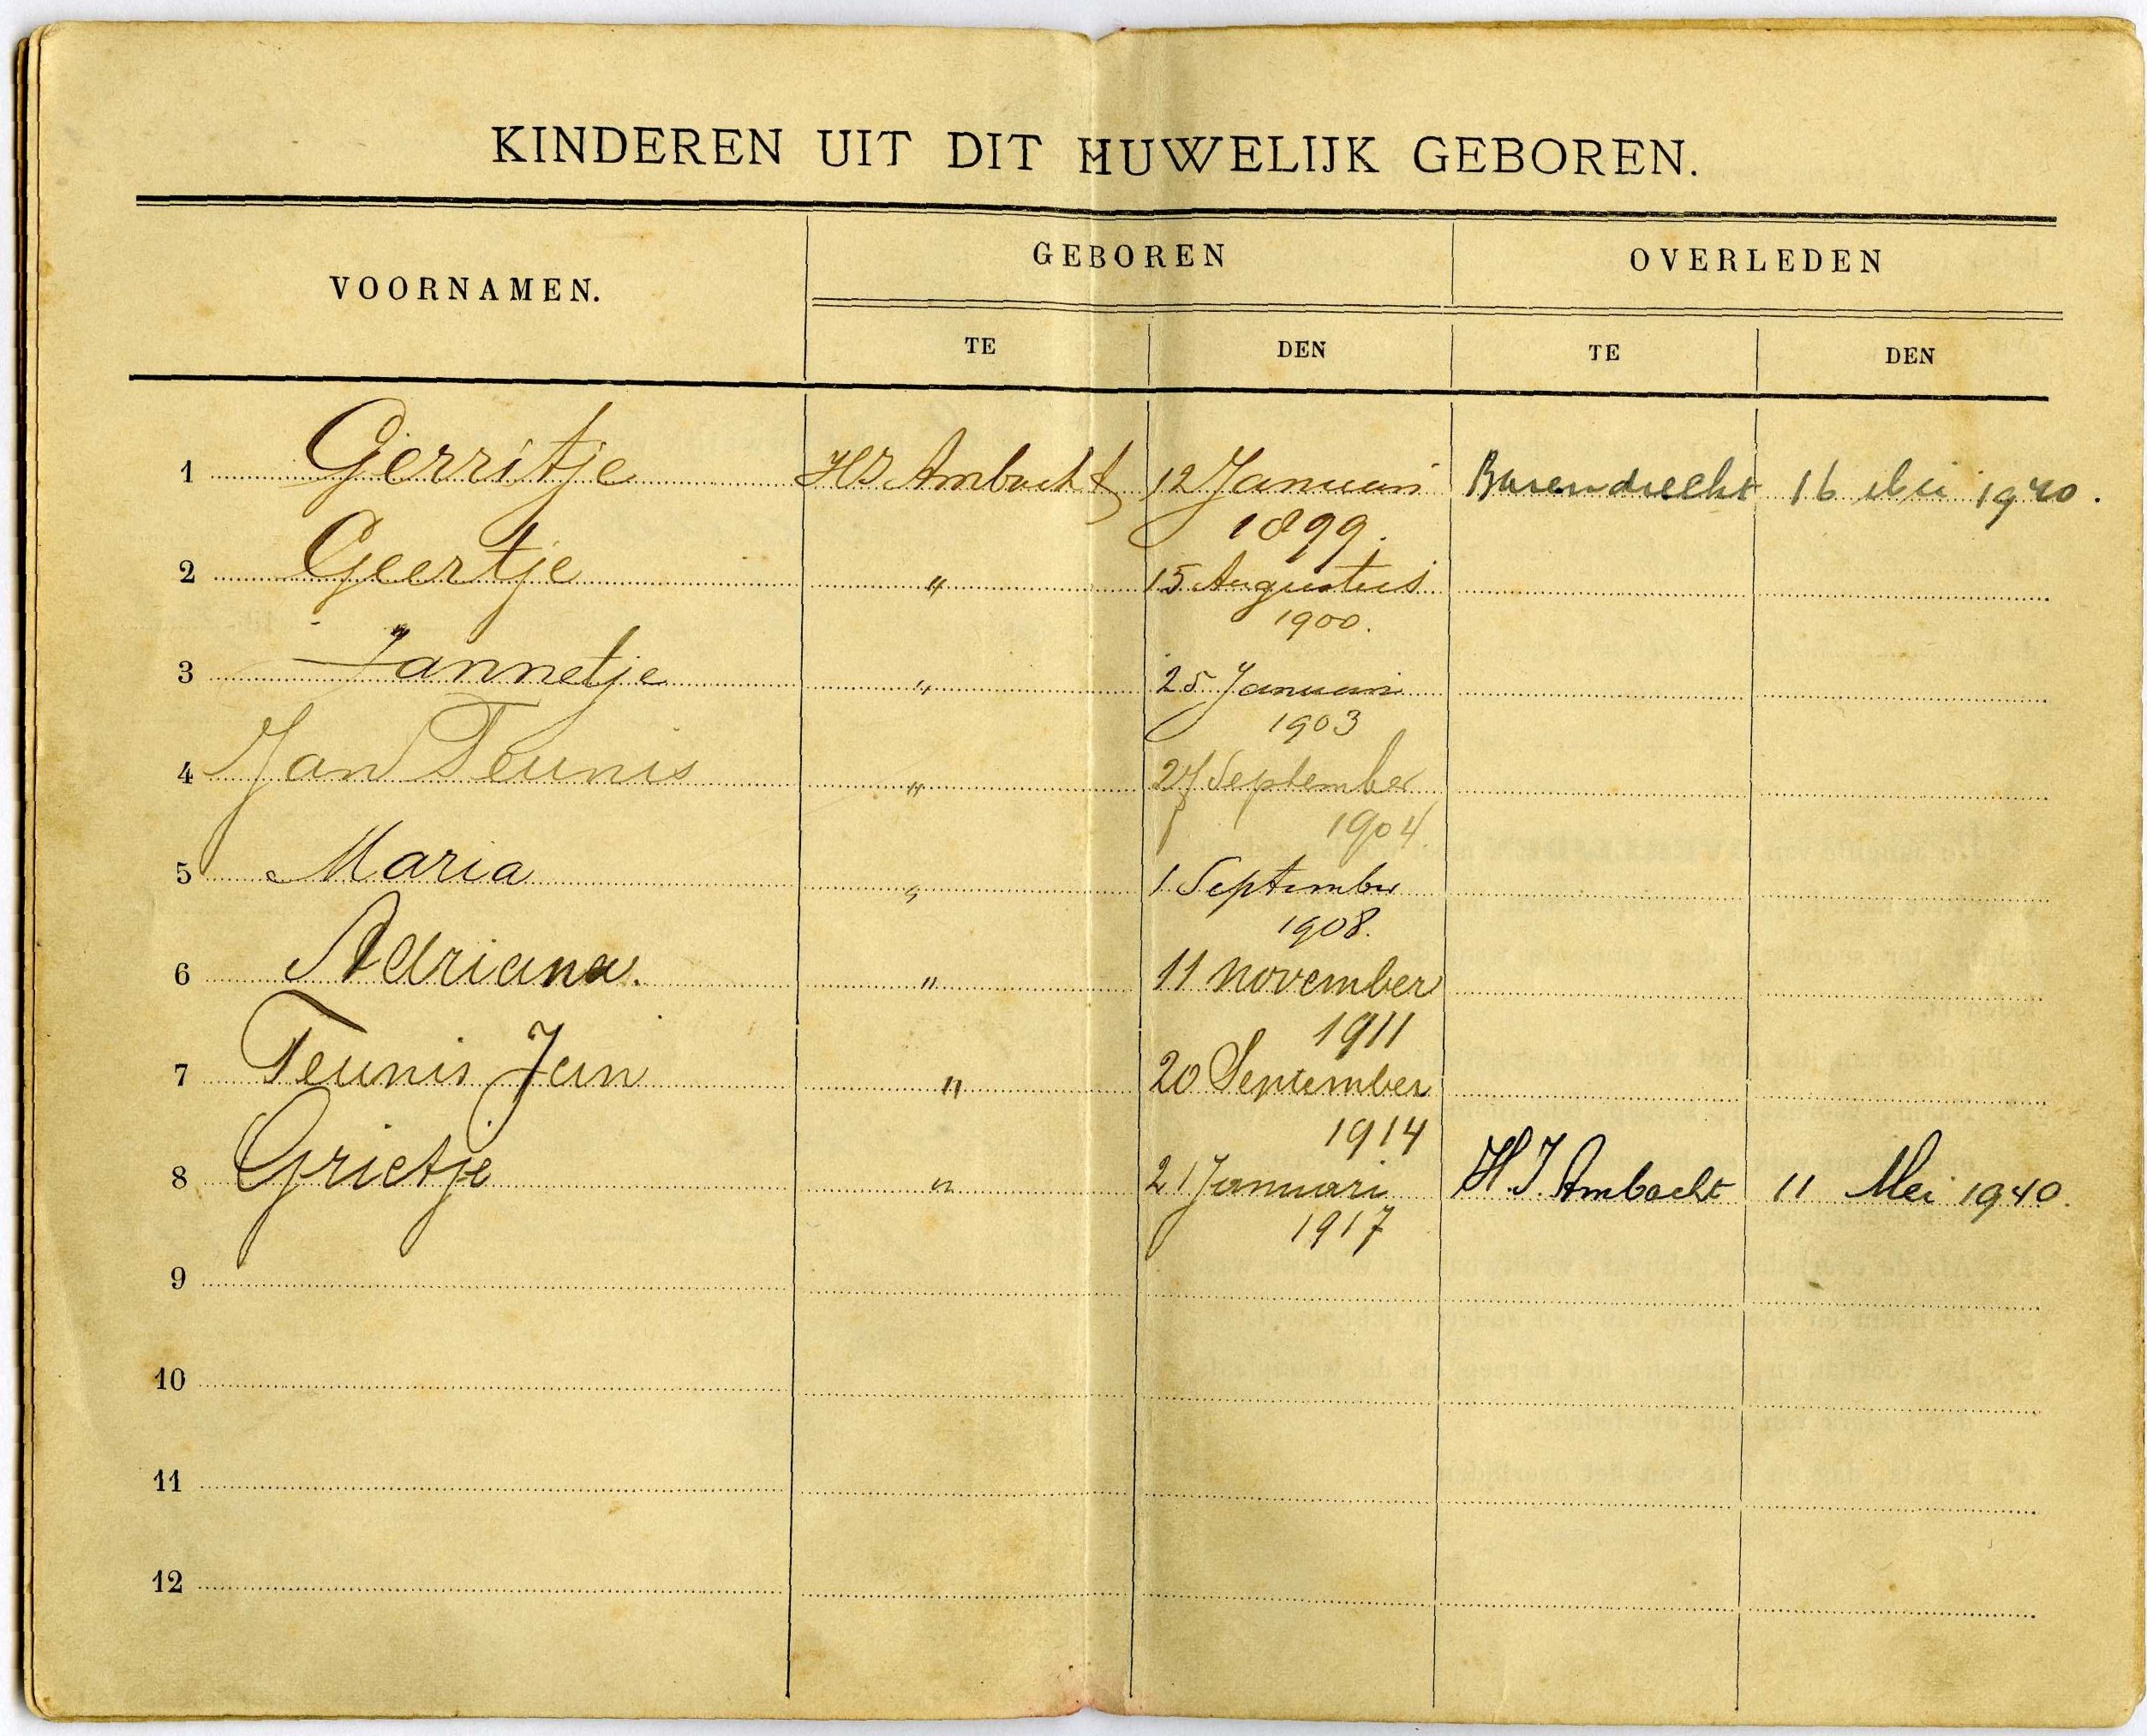 KINDEREN UIT DIT HUWELIJK GEBOREN.
VOORNAMEN. GEBOREN OVERLEDEN
TE DEN TE DEN
1 Gerritje HI Ambacht 12 Januari Barendrecht 16 Mei 1940.
1899.
2 Geertje " 15 Augustus
1900.
3 Jannetje " 25 Januari
1903
4 Jan Teunis " 27 September
1904.
5 Maria " 1 September
1908.
6 Adriana. " 11 november
1911
7 Teunis Jan " 20 September
1914
8 Grietje " 21 Januari H.I. Ambacht 11 Mei 1940.
1917
9
10
11
12